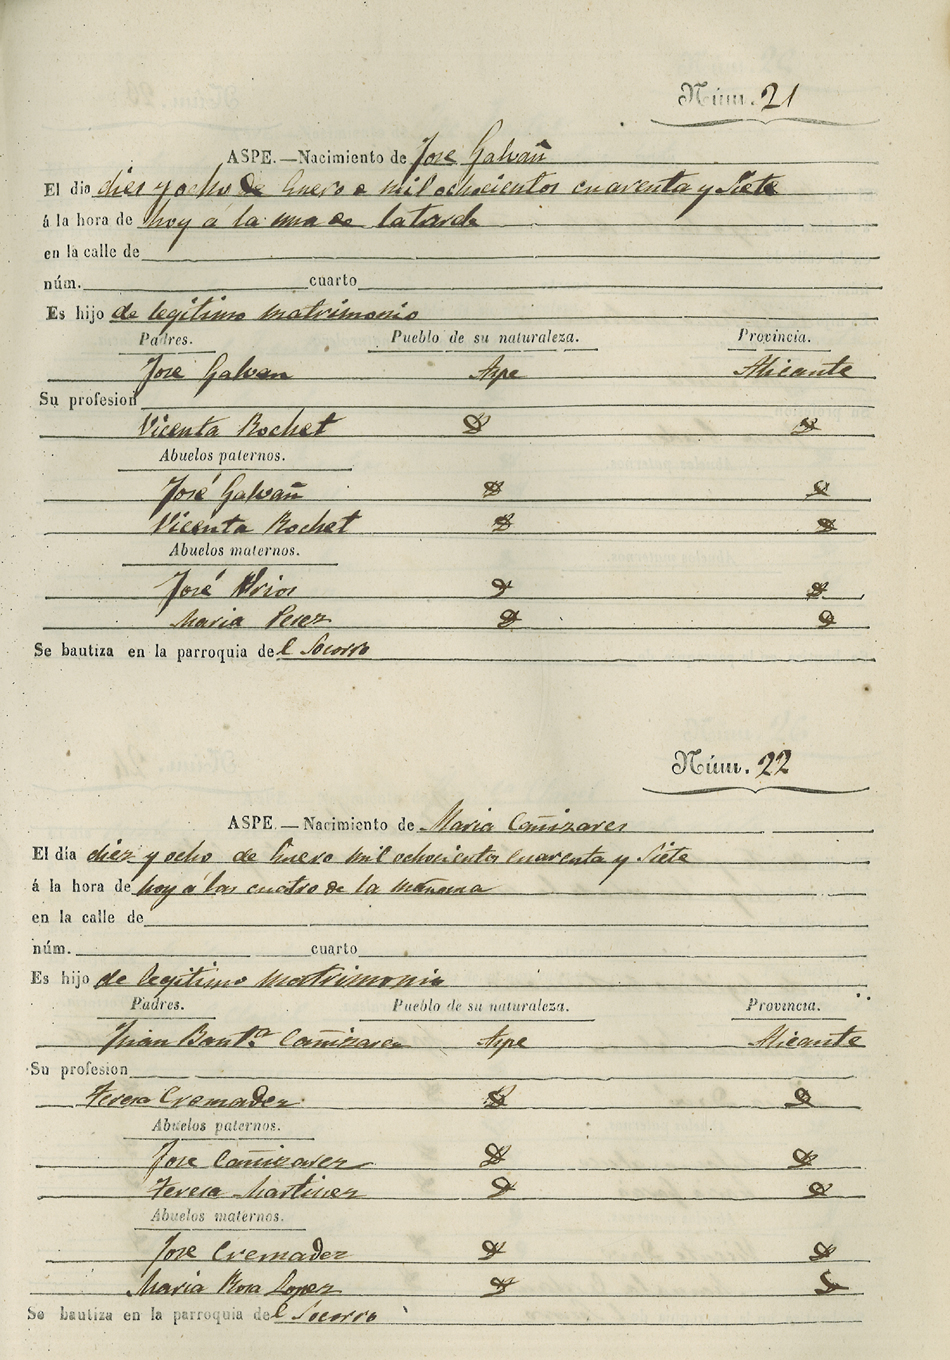 Núm. 21
ASPE.—Nacimiento de Jose Galvañ
El dia diez y ocho de Enero e mil ochocientos cuarenta y Siete
á la hora de hoy á la una de la tarde
en la calle de
núm. cuarto
Es hijo de legitimo matrimonio
Padres. Pueblo de su naturaleza. Provincia.
Jose Galvan Aspe Alicante
Su profesion
Vicenta Rochet
Abuelos paternos.
José Galvañ
Vicenta Rochet
Abuelos maternos.
José
Maria Perez
Se bautiza en la parroquia del Socorro
Núm. 22
ASPE.—Nacimiento de Maria Cañizares
El día diez y ocho de Enero mil ochocientos cuarenta y Siete
á la hora de hoy á las cuatro de la mañana
en la calle de
núm. cuarto
Es hijo de legitimo matrimonio
Padres. Pueblo de su naturaleza. Provincia.
Juan Baut.ta Cañizares Aspe Alicante
Su profesion
Teresa Cremadez
Abuelos paternos.
Jose Cañizarez
Teresa Martinez
Abuelos maternos.
Jose Cremadez
Maria Rosa Lopez
Se bautiza en la parroquia del Socorro